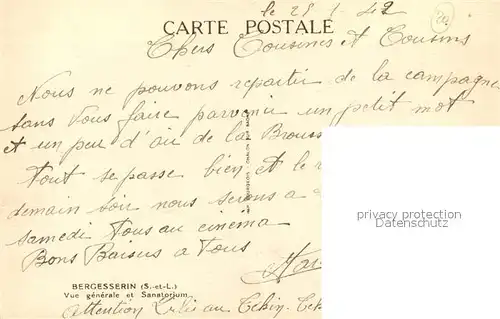 le 25-1-42
CARTE POSTALE
Chers Cousines et Cousins
Nous ne pouvons repartir de la campagne
sans vous faire parvenir un petit mot
et un peu d'air de la Brouss
Tout se passe bien et le
demain soir nous serons a
samedi Tous au cinéma
Bons Baisers a Tous
privacy protection
Datenschutz
BERGESSERIN (S.-et-L.)
Vue générale et Sanatorium
attention au